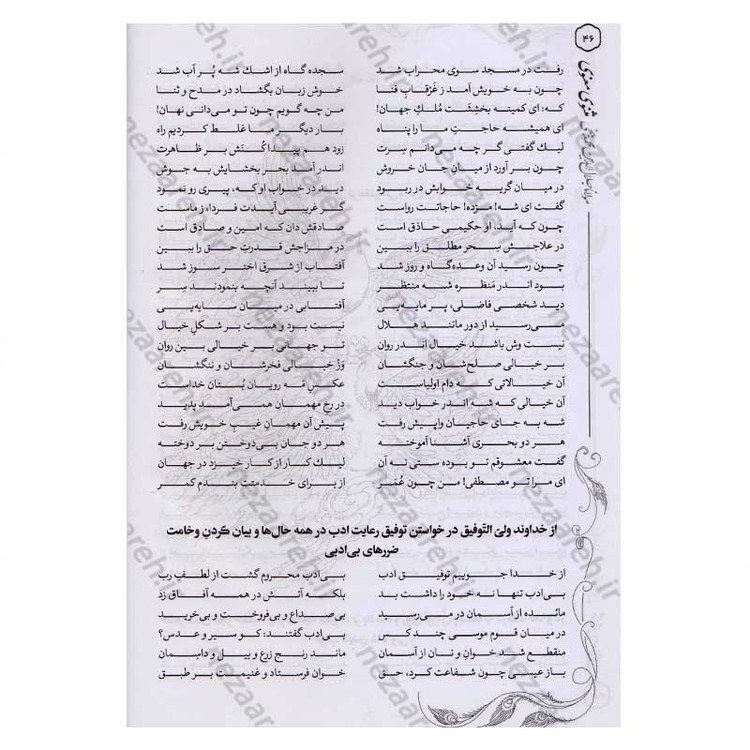 ۴۶
مثنوی معنوی
رفت در مسجد سوی محراب شد سجده گاه از اشك شه پُر آب شد
چون به خویش آمد ز غرقابِ فنا خوش زبان بگشاد در مدح و ثنا
که: ای کمینه بخشِشَت مُلكِ جهان! من چه گویم چون تو می‌دانی نهان!
ای همیشه حاجتِ ما را پناه بار دیگر ما غلط کردیم راه
لیك گفتی گر چه می‌دانم سِرت زود هم پیدا کُنَش بر ظاهرت
چون بر آورد از میانِ جان خروش اندر آمد بحر بخشایش به جوش
در میان گریه خوابش در ربود دید در خواب او که، پیری رو نمود
گفت ای شه! مژده! حاجاتت رواست گر غریبی آیدت فردا، ز ماست
چون که آید، او حکیمی حاذق است صادقش دان که امین و صادق است
در علاجش سِحر مطلق را ببین در مزاجش قدرتِ حق را ببین
چون رسید آن وعده‌گاه و روز شد آفتاب از شرق اختر سوز شد
بود اندر مَنظره شه منتظر تا ببیند آنچه بنمودند سِر
دید شخصی فاضلی، پر مایه‌یی آفتابی در میان سایه‌یی
می‌رسید از دور مانند هلال نیست بود و هست بر شکلِ خیال
نیست وش باشد خیال اندر روان تو جهانی بر خیالی بین روان
بر خیالی صلح‌شان و جنگشان وَز خیالی فخرشان و ننگشان
آن خیالاتی که دام اولیاست عکسِ مَه رویان بُستان خداست
آن خیالی که شه اندر خواب دید در رخِ مهمان همی‌آمد پدید
شه به جای حاجبان واپیش رفت پیش آن مهمانِ غیبِ خویش رفت
هر دو بحری آشنا آموخته هر دو جان بی‌دوختن بر دوخته
گفت معشوقم تو بوده ستی نه آن لیك کار از کار خیزد در جهان
ای مرا تو مصطفی! من چون عُمَر از برای خدمتت بندم کمر
از خداوند ولیّ التّوفیق در خواستن توفیق رعایت ادب در همه حال‌ها و بیان کردنِ وخامت
ضررهای بی‌ادبی
از خدا جوییم توفیق ادب بی‌ادب محروم گشت از لطفِ رب
بی‌ادب تنها نه خود را داشت بد بلکه آتش در همه آفاق زد
مائده از آسمان در می‌رسید بی‌صداع و بی‌فروخت و بی‌خرید
در میان قوم موسی چند کس بی‌ادب گفتند: کو سیر و عدس؟
منقطع شد خوان و نان از آسمان ماند رنج زرع و بیل و داسِمان
باز عیسی چون شفاعت کرد، حق خوان فرستاد و غنیمت بر طبق
nezaareh.ir